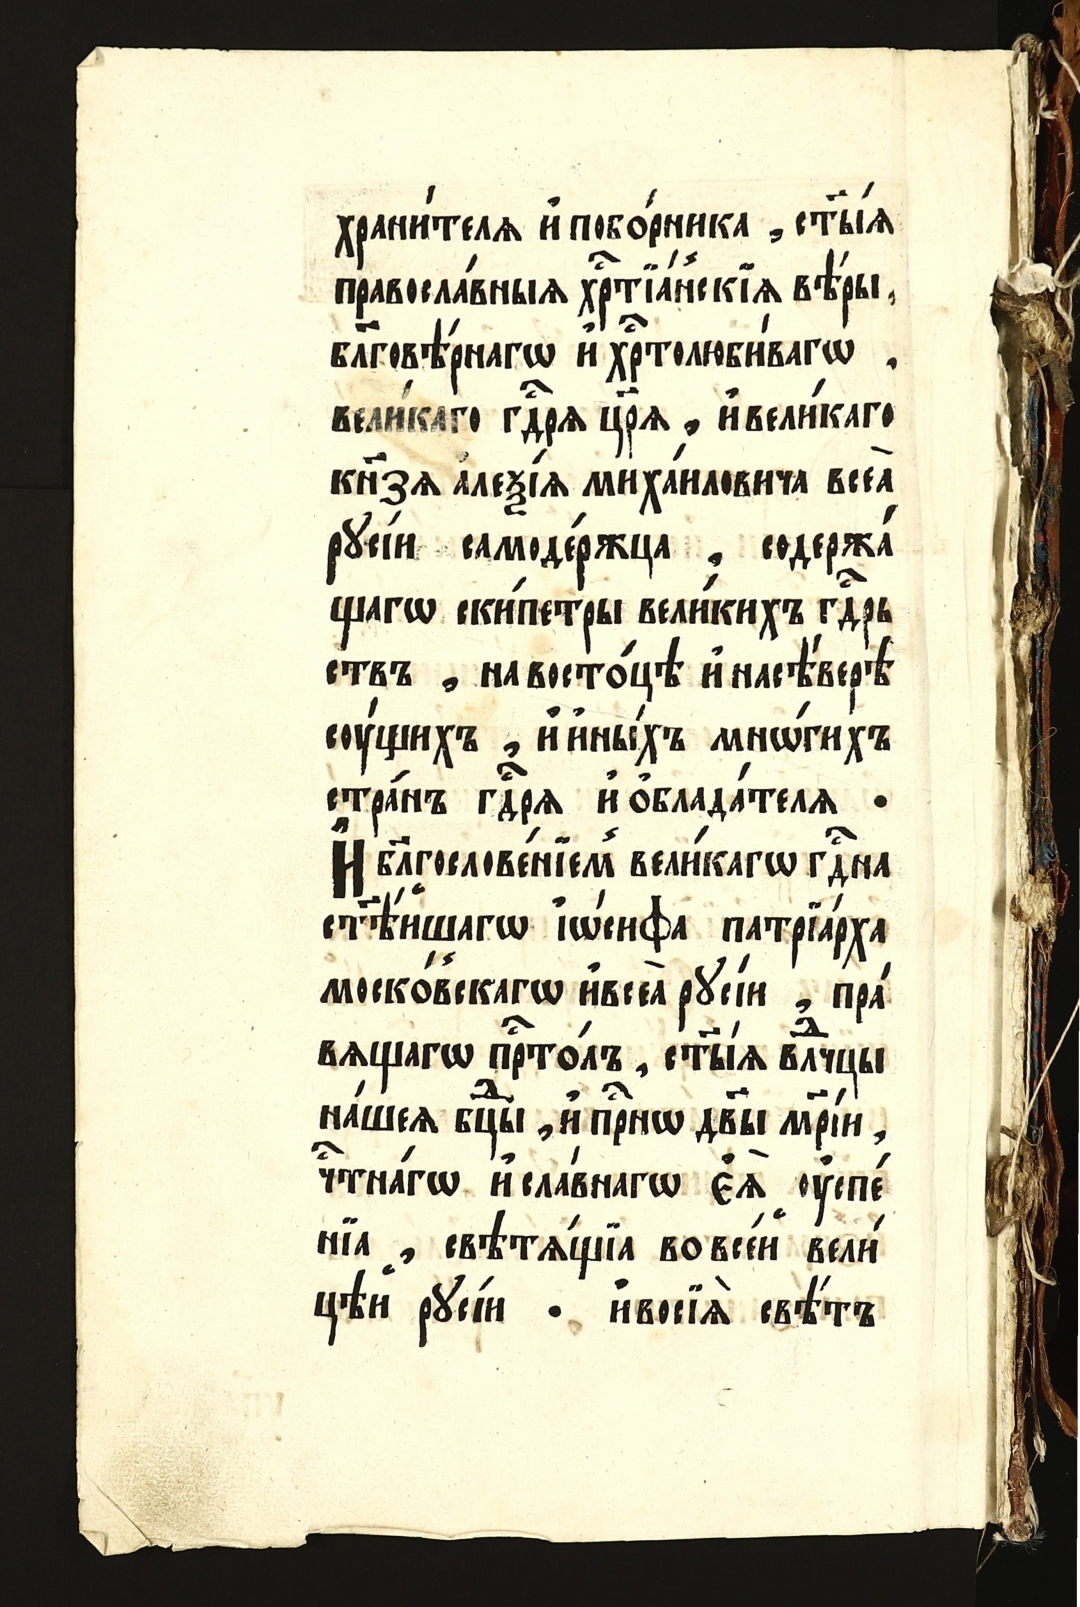 храни́телѧ и҆ побо́рника , ст҃ы́ѧ
правосла́вныѧ хрⷭ҇тїа́нскїѧ вѣ́ры ,
бл҃говѣ́рнагѡ и҆ хрⷭ҇толюби́вагѡ ,
вели́каго гдⷭ҇рѧ цр҃ѧ , и҆ вели́каго
кн҃зѧ а҆леѯі́ѧ миха́иловича всеѧ̀
рꙋсі́и самоде́ржца , содержа́
щагѡ ски́петры вели́кихъ гдⷭ҇рь
ствъ , на восто́цѣ и҆ на сѣ́верѣ
соу́щихъ , и҆ и҆ны́хъ мнѡ́гихъ
стра́нъ гдⷭ҇рѧ и҆ ѻ҆блада́телѧ .
И҆ бл҃гослове́нїемъ вели́кагѡ гдⷭ҇на
ст҃ѣ́йшагѡ і҆ѡ́сифа патрїа́рха
моско́вскагѡ и҆ всеѧ̀ рꙋсі́и , пра́
вѧщагѡ прⷭ҇то́лъ , ст҃ы́ѧ влⷣчцы
на́шеѧ бцⷣы , и҆ прⷭ҇нѡ дв҃ы мр҃і́и ,
чⷭ҇тна́гѡ и҆ сла́внагѡ є҆ѧ̀ оу҆спе́
нїа , свѣтѧ́щїа во все́й вели́
цѣй рꙋсі́и . и҆ восїѧ̀ свѣ́тъ